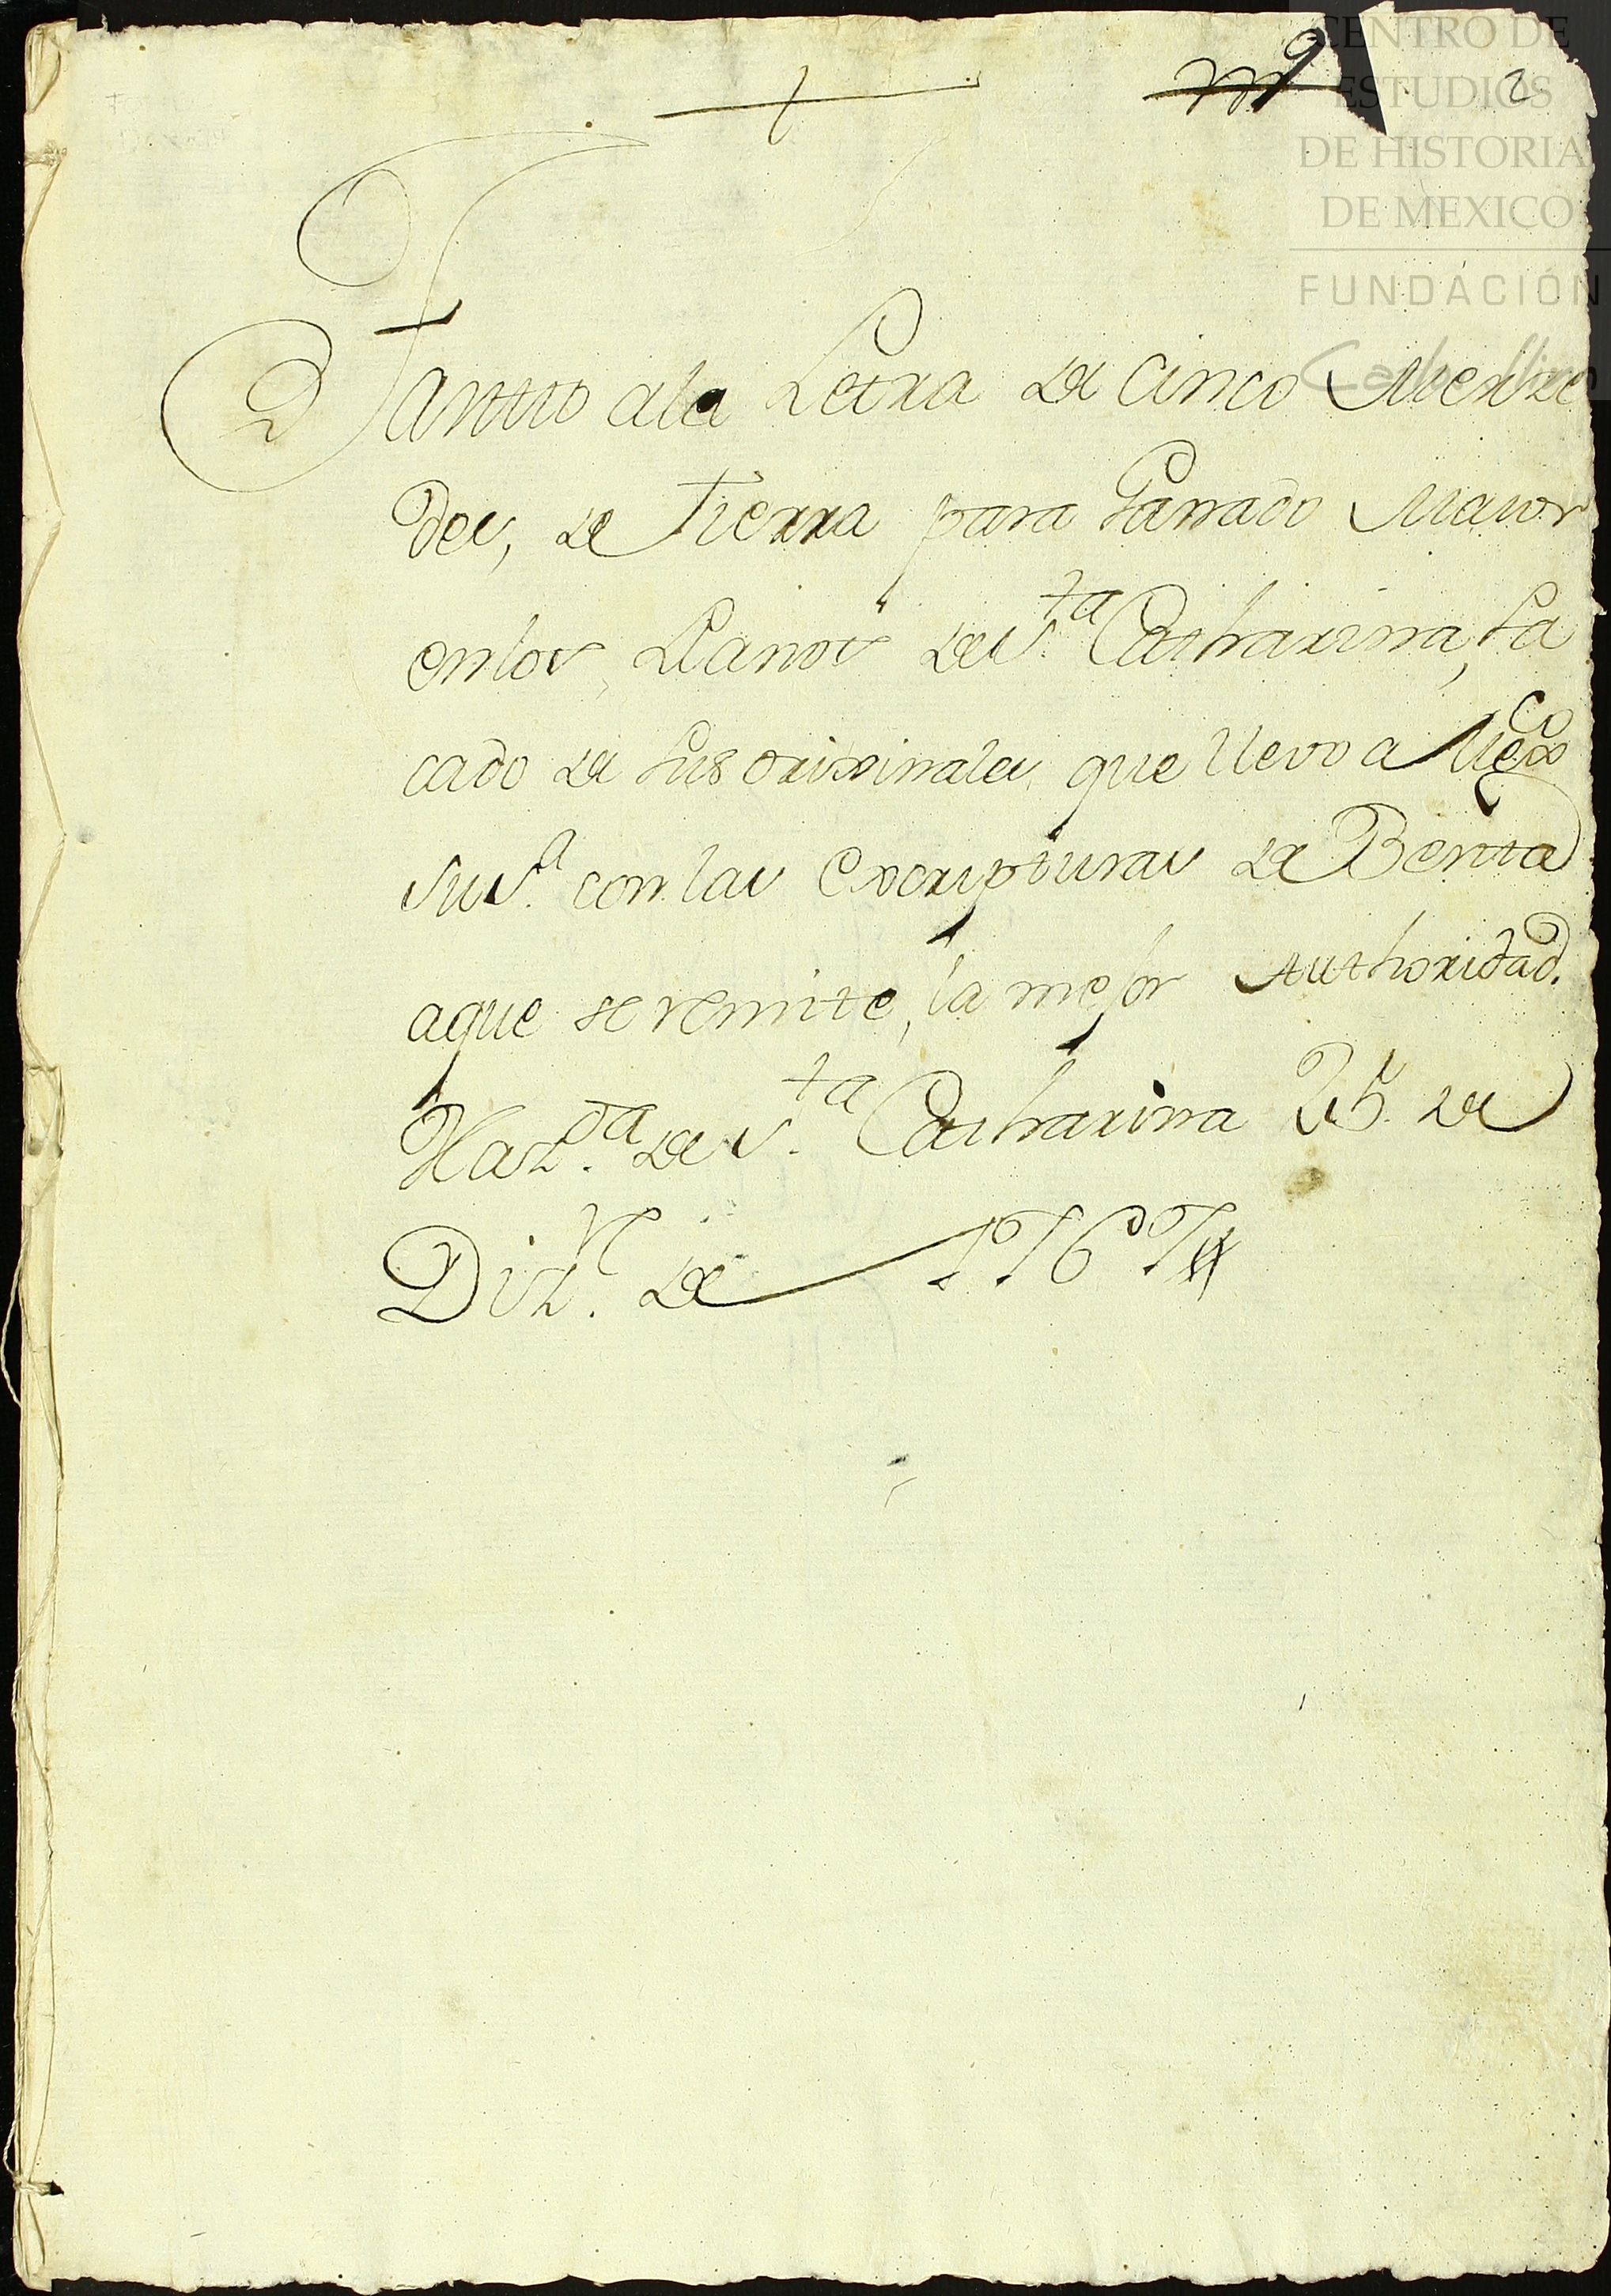 CENTRO DE
ESTUDIOS
DE HISTORIA
DE MEXICO
FUNDACIÓN
Carlos Slim
2
Tantto ala Letra de cinco Merze
des, de tierra para Ganado Maior
enlos Llanos de S.ta Catharina, sa
cado de sus orixinales, que llevo a Mex.co
su S.a con las excripturas de Benta
aque se remite, la mejor Authoridad.
Haz.da de S.ta Catharina 25. de
Diz.re de 1767